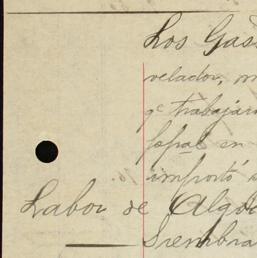 Los Gas
velador, m
qe trabajar
en
importó
Labor de Algo
Siembra